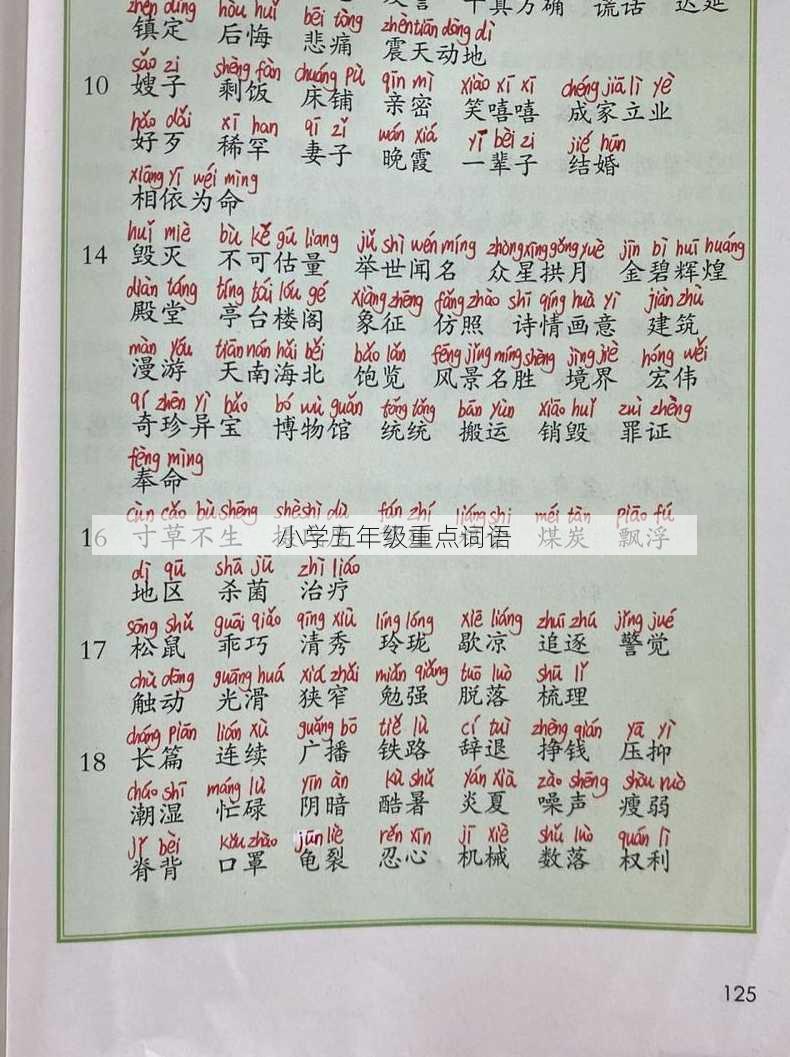 千真万确 谎话 迟延
zhèn dìng hòu huǐ bēi tòng zhèn tiān dòng dì
镇定 后悔 悲痛 震天动地
sǎo zi shèng fàn chuáng pù qīn mì xiào xī xī chéng jiā lì yè
10 嫂子 剩饭 床铺 亲密 笑嘻嘻 成家立业
hǎo dǎi xī han qī zǐ wán xiá yī bèi zi jié hūn
好歹 稀罕 妻子 晚霞 一辈子 结婚
xiāng yī wéi mìng
相依为命
huǐ miè bù kě gū liang jǔ shì wén míng zhòng xīng gǒng yuè jīn bì huī huáng
14 毁灭 不可估量 举世闻名 众星拱月 金碧辉煌
diàn táng tíng tái lóu gé xiàng zhēng fǎng zhào shī qíng huà yì jiàn zhù
殿堂 亭台楼阁 象征 仿照 诗情画意 建筑
màn yóu tiān nán hǎi běi bǎo lǎn fēng jǐng míng shèng jìng jiè hóng wěi
漫游 天南海北 饱览 风景名胜 境界 宏伟
qí zhēn yì bǎo bó wù guǎn tǒng tǒng bān yùn xiāo huǐ zuì zhèng
奇珍异宝 博物馆 统统 搬运 销毁 罪证
fèng mìng
奉命
cùn cǎo bù shēng shè shì dù fán zhí liáng shi méi tàn piāo fú
16 寸草不生 煤炭 飘浮
小学五年级重点词语
dì qū shā jūn zhì liáo
地区 杀菌 治疗
sōng shǔ guāi qiǎo qīng xiù líng lóng xiē liáng zhuī zhú jǐng jué
17 松鼠 乖巧 清秀 玲珑 歇凉 追逐 警觉
chù dòng guāng huá xiá zhǎi miǎn qiǎng tuō luò shū lǐ
触动 光滑 狭窄 勉强 脱落 梳理
cháng piān lián xù guǎng bō tiě lù cí tuì zhèng qián yā yì
18 长篇 连续 广播 铁路 辞退 挣钱 压抑
cháo shī máng lù yīn àn kù shǔ yán xià zào shēng shòu ruò
潮湿 忙碌 阴暗 酷暑 炎夏 噪声 瘦弱
jǐ bèi kǒu zhào jūn liè rěn xīn jī xiè shǔ luò quán lì
脊背 口罩 龟裂 忍心 机械 数落 权利
125